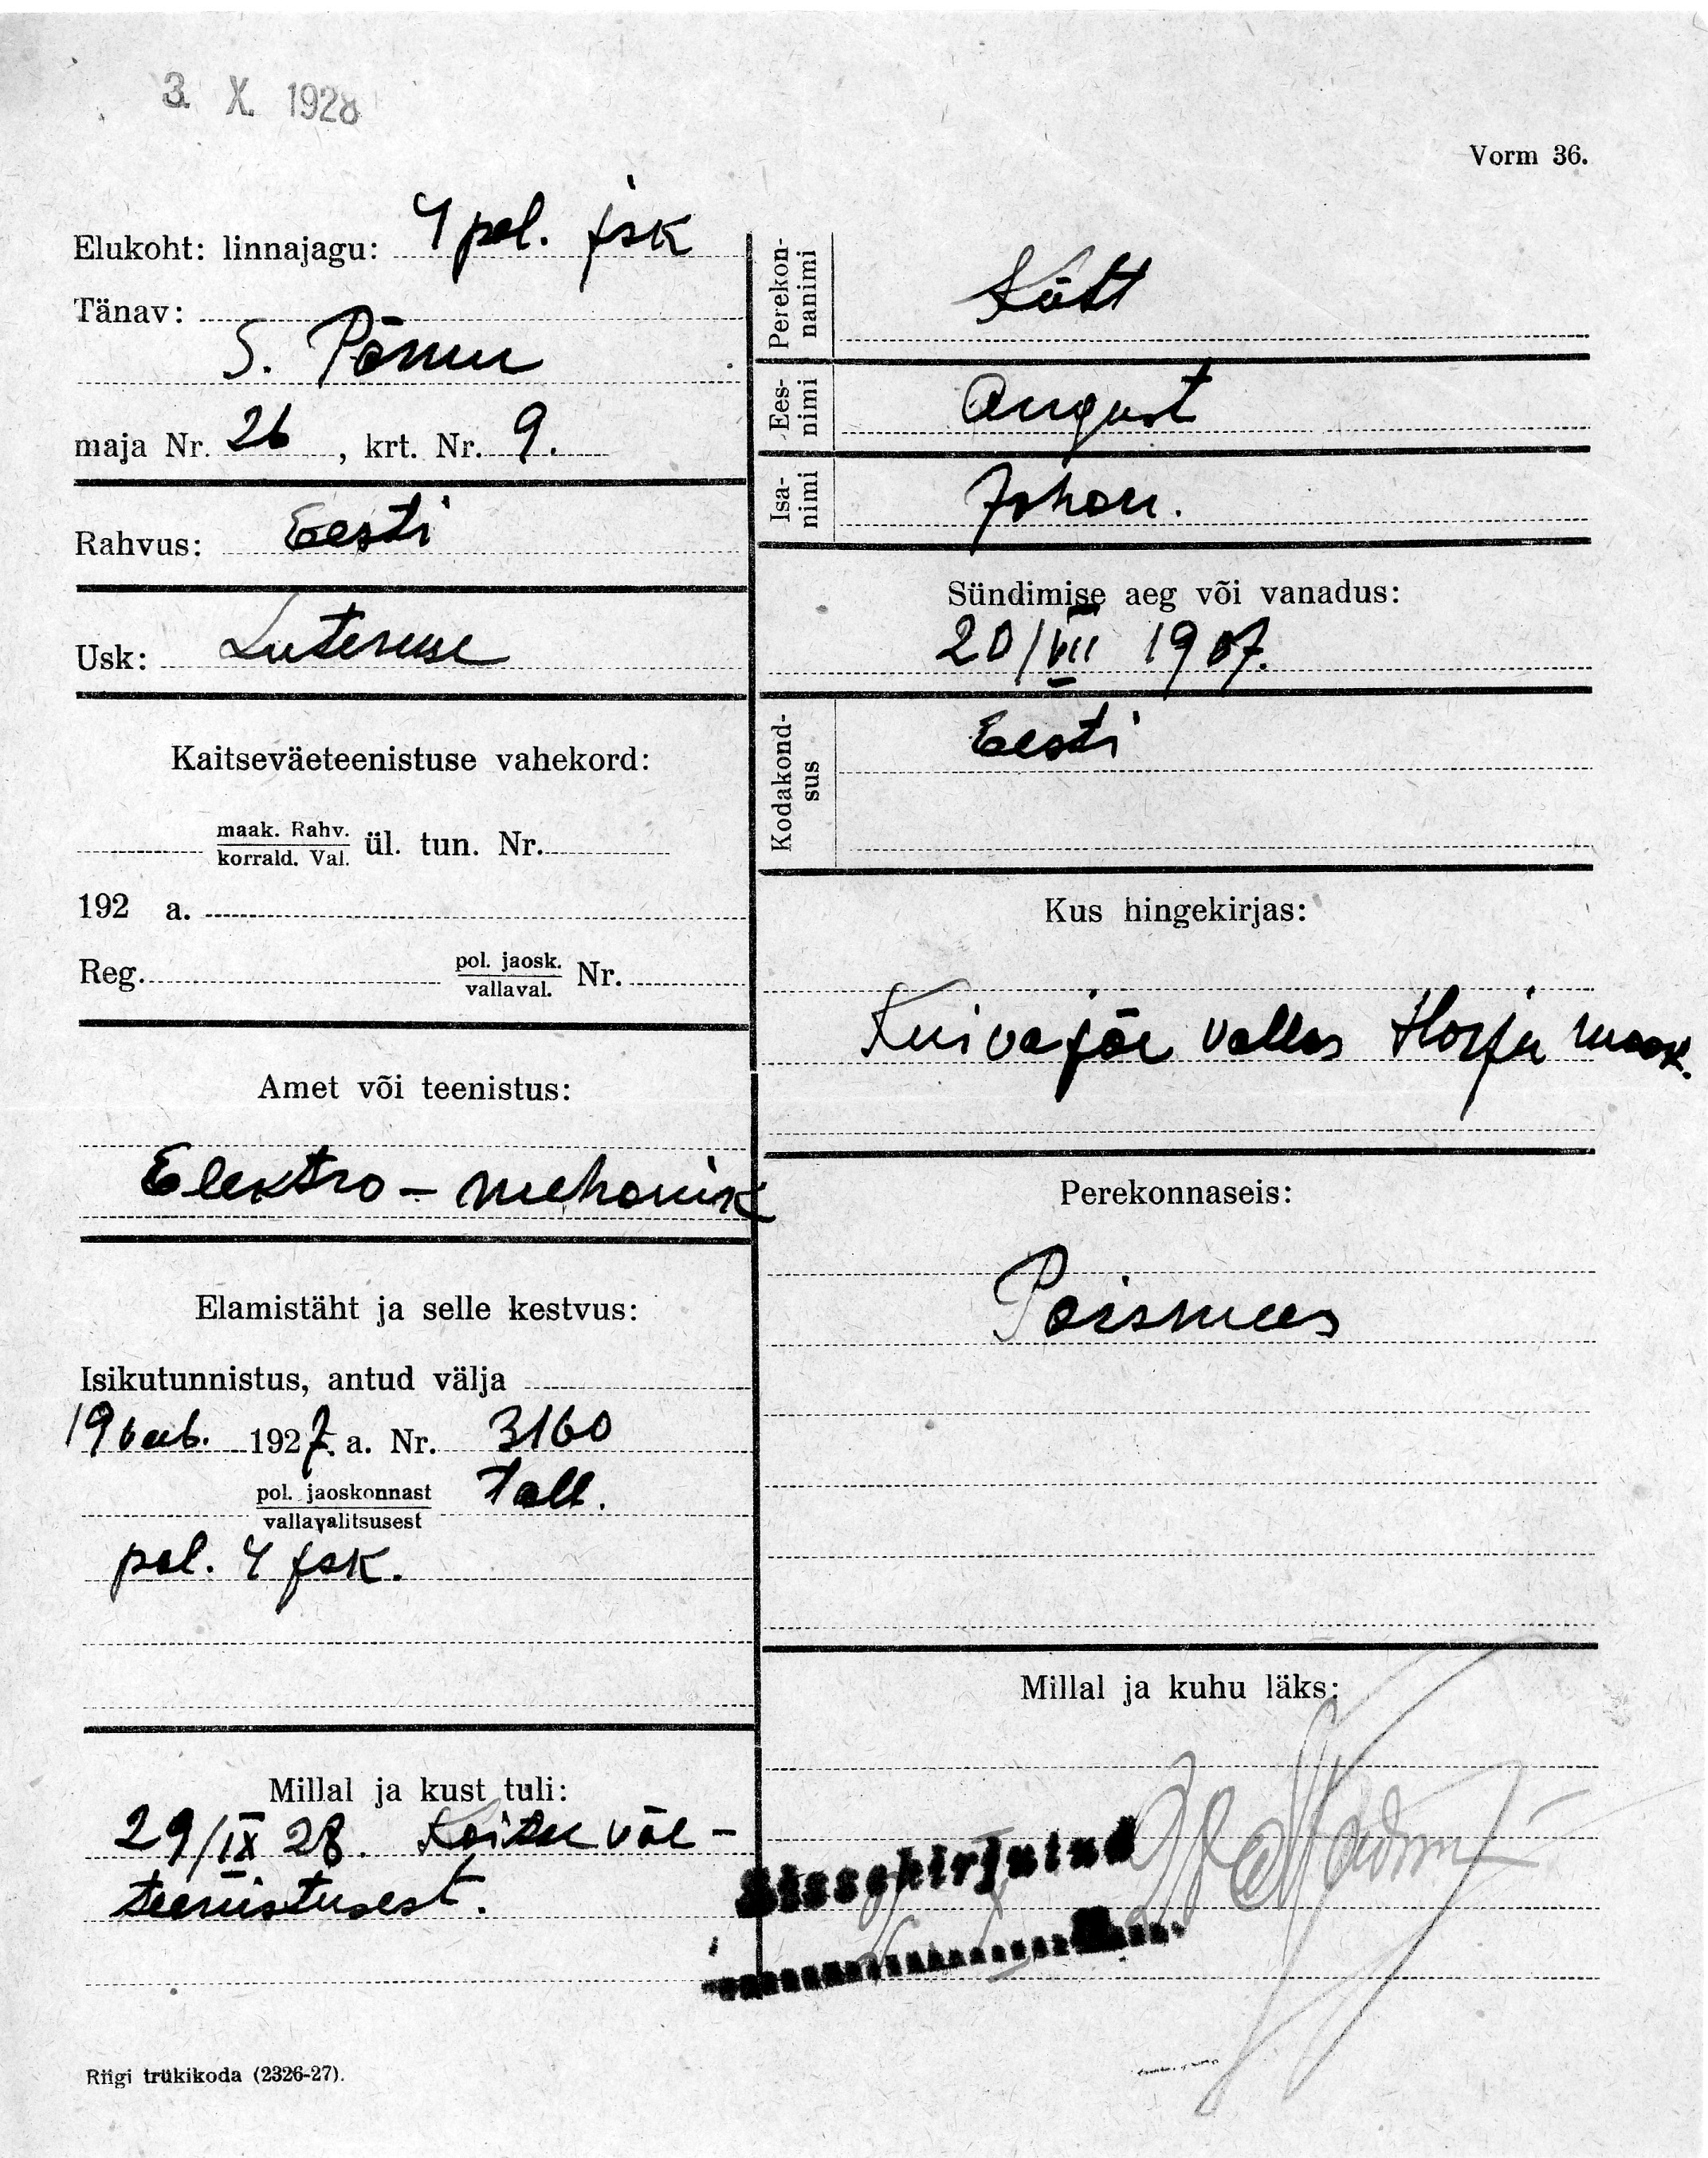 3. X. 1928
Vorm 36.
Elukoht: linnajagu: 4 pol. jsk
Tänav:
S. Pärnu
maja Nr. 26, krt. Nr. 9.
Rahvus: Eesti
Usk: Luteruse
Kaitseväeteenistuse vahekord:
maak. Rahv.
korrald. Val. ül. tun. Nr.
192 a.
Reg. pol. jaosk.
vallaval. Nr.
Amet või teenistus:
Elektro-mehanik
Elamistäht ja selle kestvus:
Isikutunnistus, antud välja
19 1927. a. Nr. 3160
pol. jaoskonnast
vallavalitsusest Tall.
pol. 4 jsk.
Millal ja kust tuli:
29/IX 28. Kaitse väe-
teenistusest.
Riigi trükikoda (2326-27).
Perekon-
nanimi Kütt
Ees-
nimi August
Isa-
nimi Johan.
Sündimise aeg või vanadus:
20/VII 1907.
Kodakond-
sus Eesti
Kus hingekirjas:
Kuivajõe vallas Harju maak.
Perekonnaseis:
Poismees
Millal ja kuhu läks:
Sissekirjutud